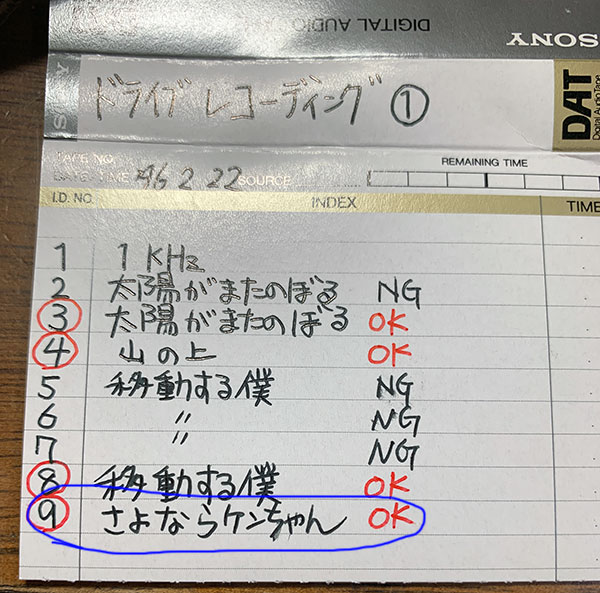 DIGITAL AUDIO
SONY
SONY
ドライブレコーディング ①
DAT
Digital Audio Tape
TAPE NO.
REMAINING TIME
DATE/TIME '96 2 22 SOURCE
I.D. NO. INDEX TIME
1 1 KHz
2 太陽がまたのぼる NG
3 太陽がまたのぼる OK
4 山の上 OK
5 移動する僕 NG
6 〃 NG
7 〃 NG
8 移動する僕 OK
9 さよならケンちゃん OK